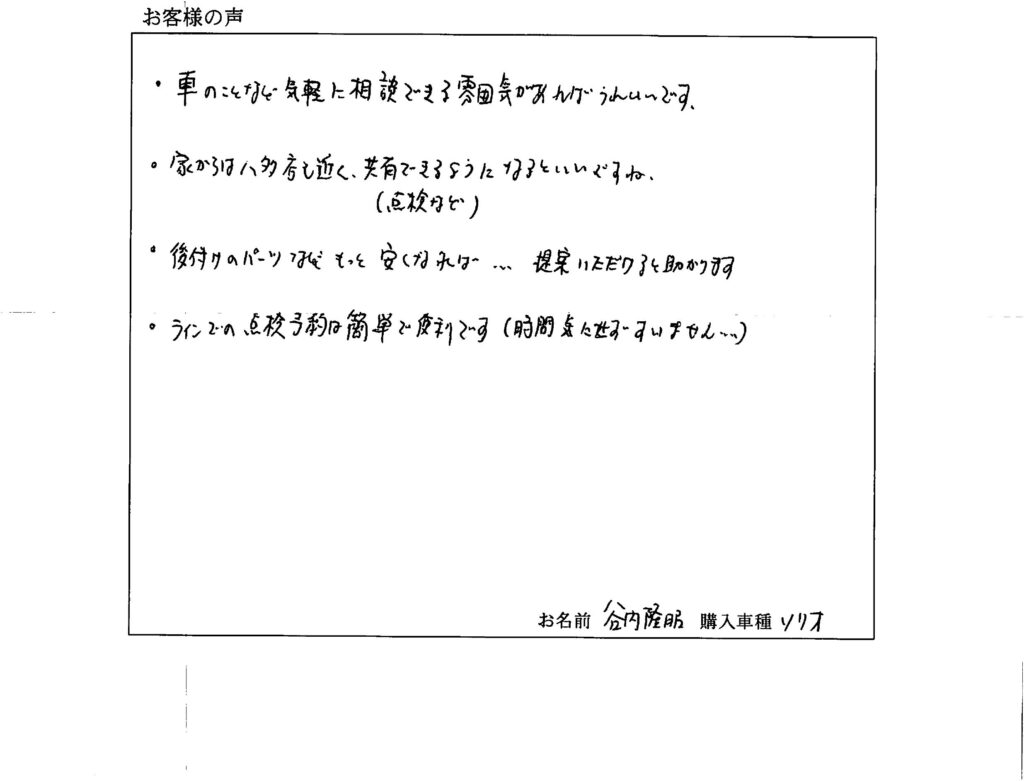 お客様の声
・車のことなど気軽に相談できる雰囲気があればうれしいです。
・家からは八多店も近く、共有できるようになるといいですね。
(点検など)
・後付けのパーツなどもっと安くなれば… 提案いただけると助かります
・ラインでの点検予約は簡単で便利です(時間気にせずすいません…)
お名前 谷内隆昭 購入車種 ソリオ